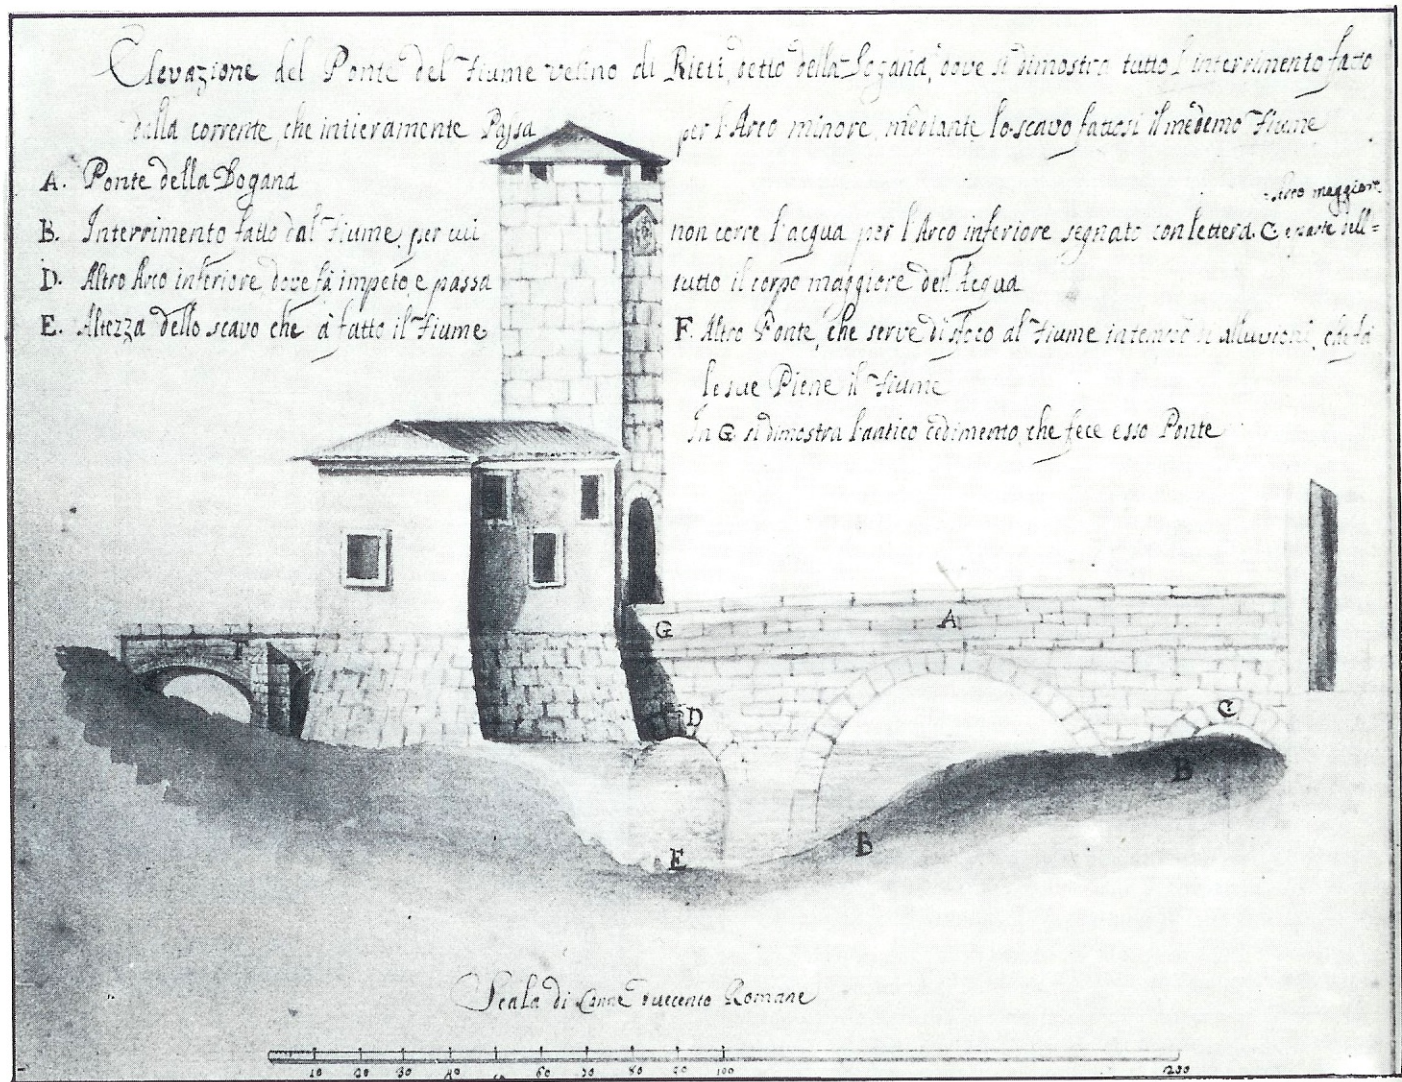 Elevazione del Ponte del Fiume velino di Rieti, detto della Dogana, dove si dimostra tutto l'interrimento fatto
dalla corrente, che intieramente Passa per l'Arco minore, mediante lo scavo fattosi il medemo Fiume
A. Ponte della Dogana
Arco maggiore
B. Interrimento fatto dal Fiume, per cui non corre l'acqua per l'Arco inferiore segnato con lettera. C e parte dell=
D. Altro Arco inferiore, dove fà impeto, e passa tutto il corpo maggiore dell'Acqua
E. Altezza dello scavo che à fatto il Fiume
F. Altro Ponte, che serve di sfogo al Fiume in le alluvioni, che fà
le sue Piene il Fiume
In G si dimostra l'antico cedimento, che fece esso Ponte
A
G
F
D
C
B
E
B
Scala di Canne duecento Romane
10 20 30 40 60 80 90 100 200